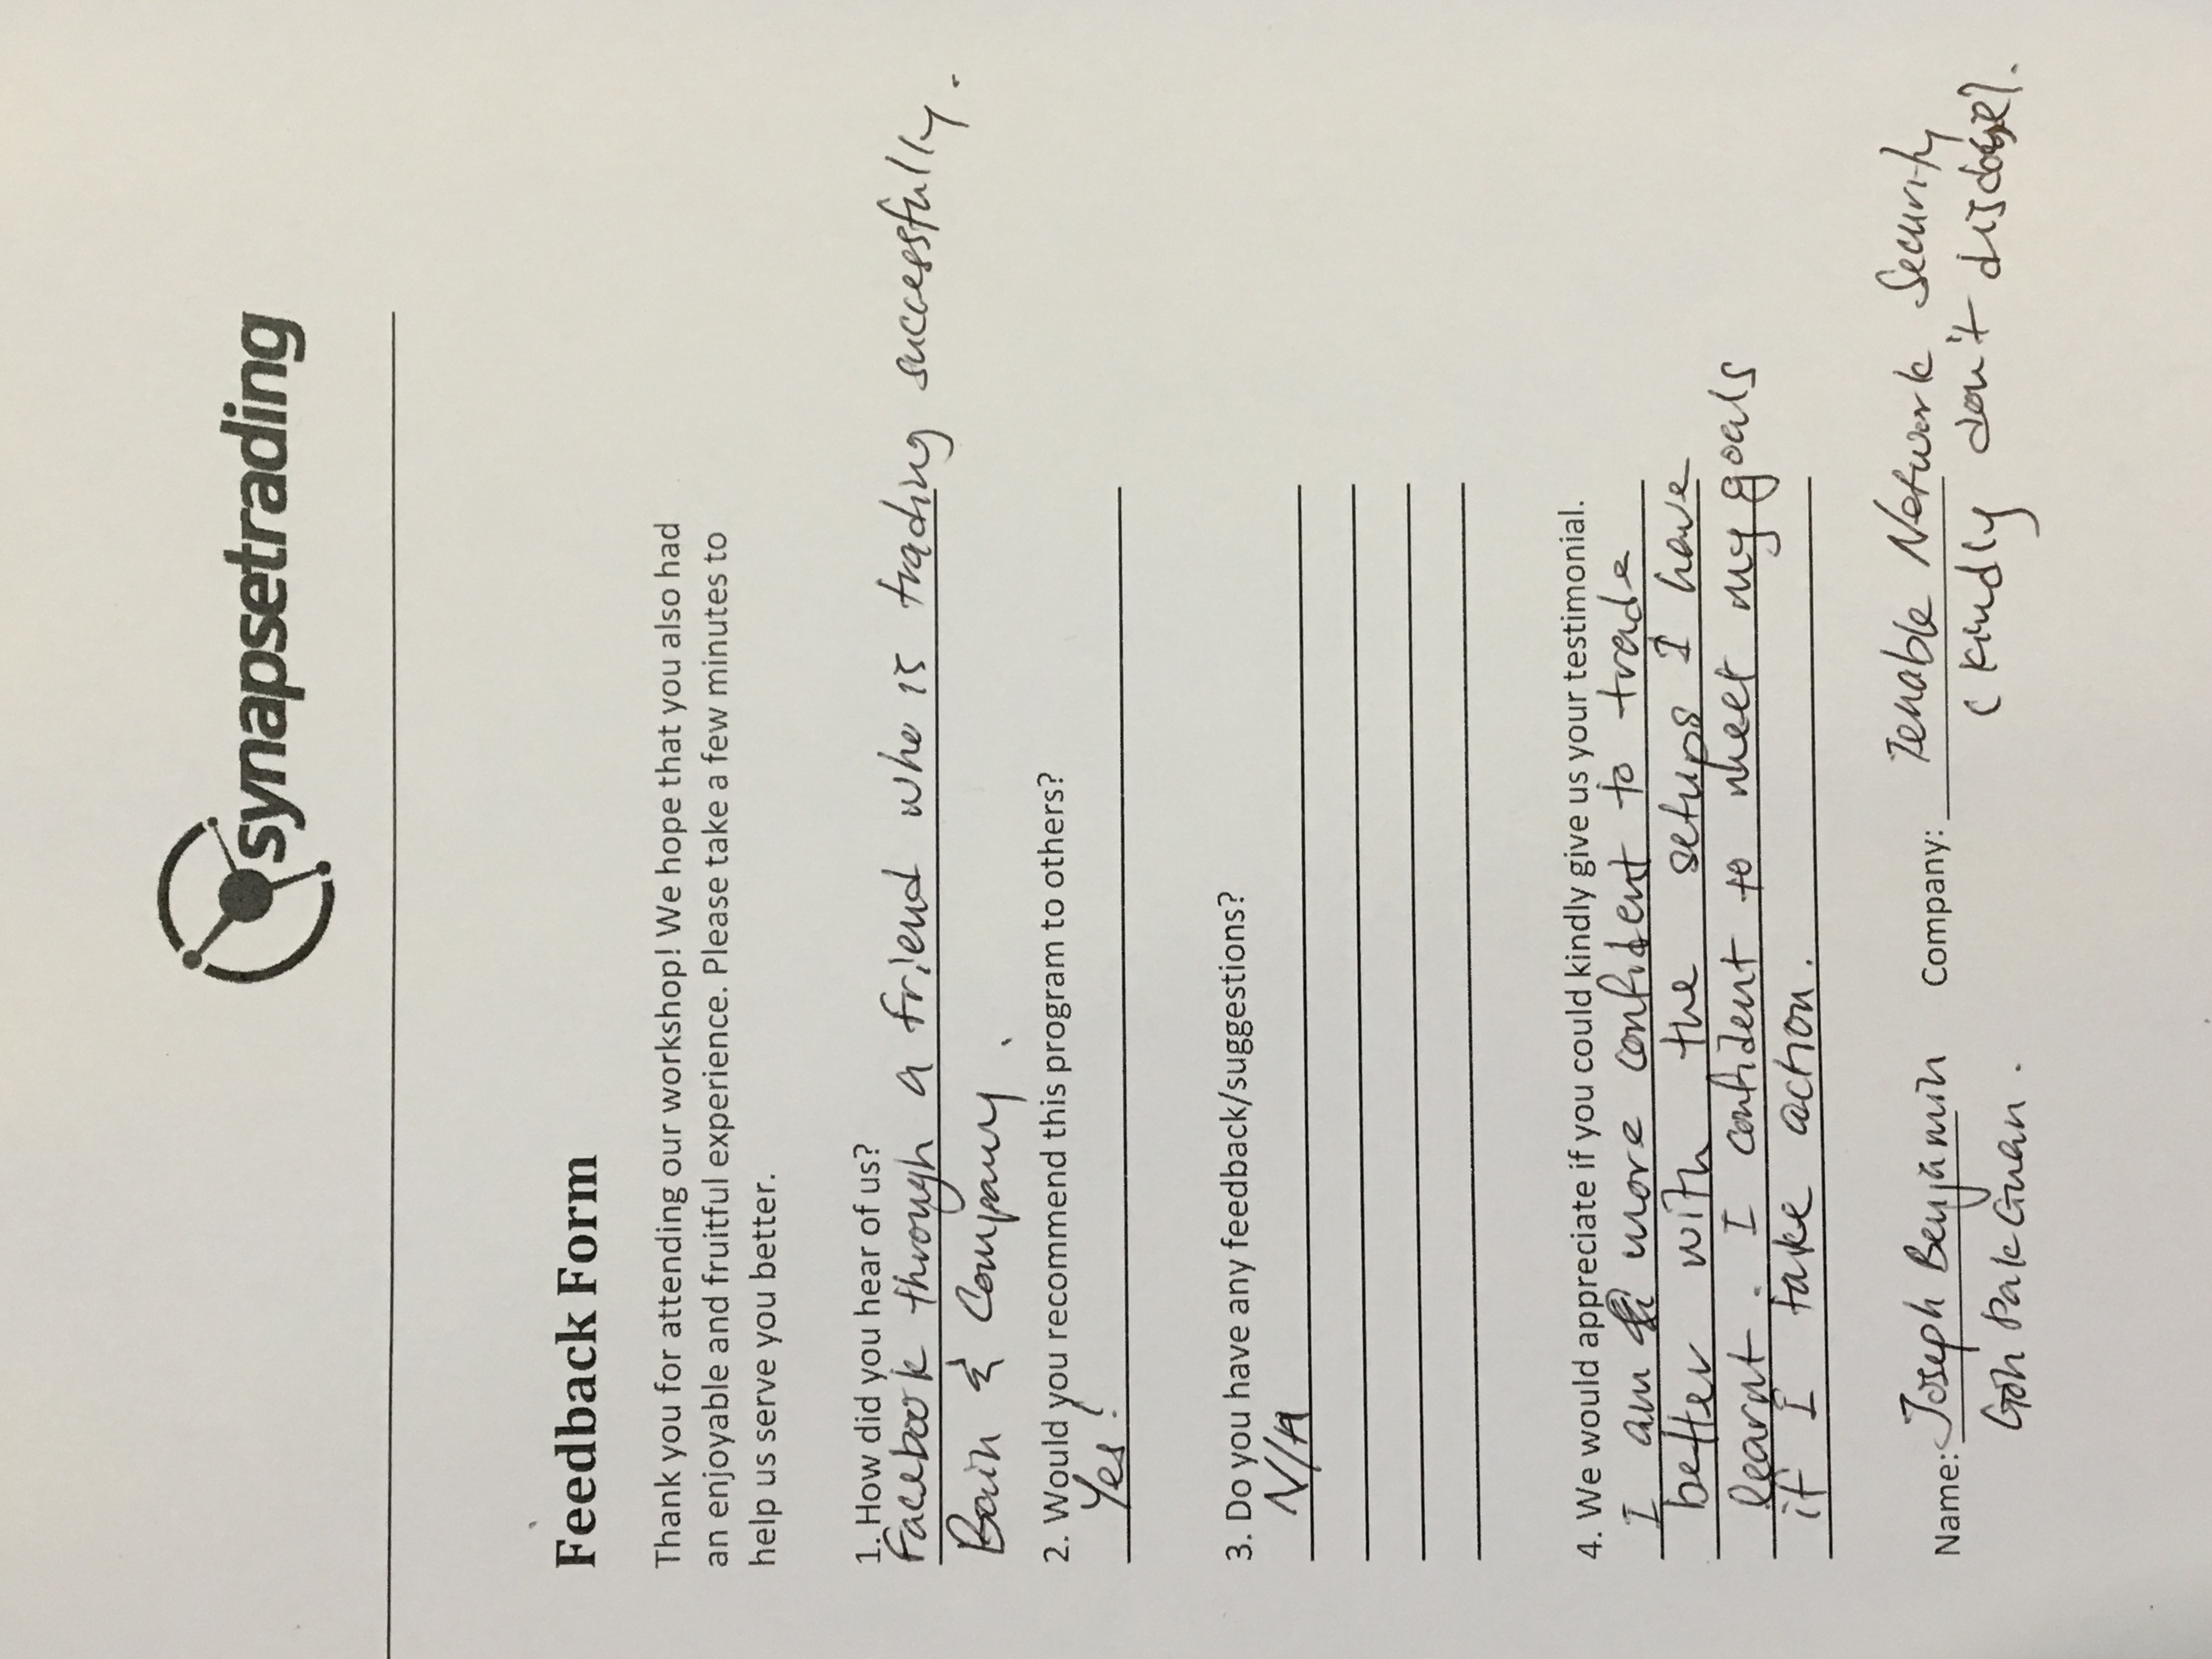 synapsetrading
Feedback Form
Thank you for attending our workshop! We hope that you also had
an enjoyable and fruitful experience. Please take a few minutes to
help us serve you better.
1. How did you hear of us?
Facebook through a friend who is trading successfully.
Bain & Company.
2. Would you recommend this program to others?
Yes!
3. Do you have any feedback/suggestions?
N/A
4. We would appreciate if you could kindly give us your testimonial.
I am more confident to trade
better with the setups I have
learnt. I confident to meet my goals
if I take action.
Name: Joseph Benjamin Company: Tenable Network Security
Goh Pak Guan. (kindly don't disclose).